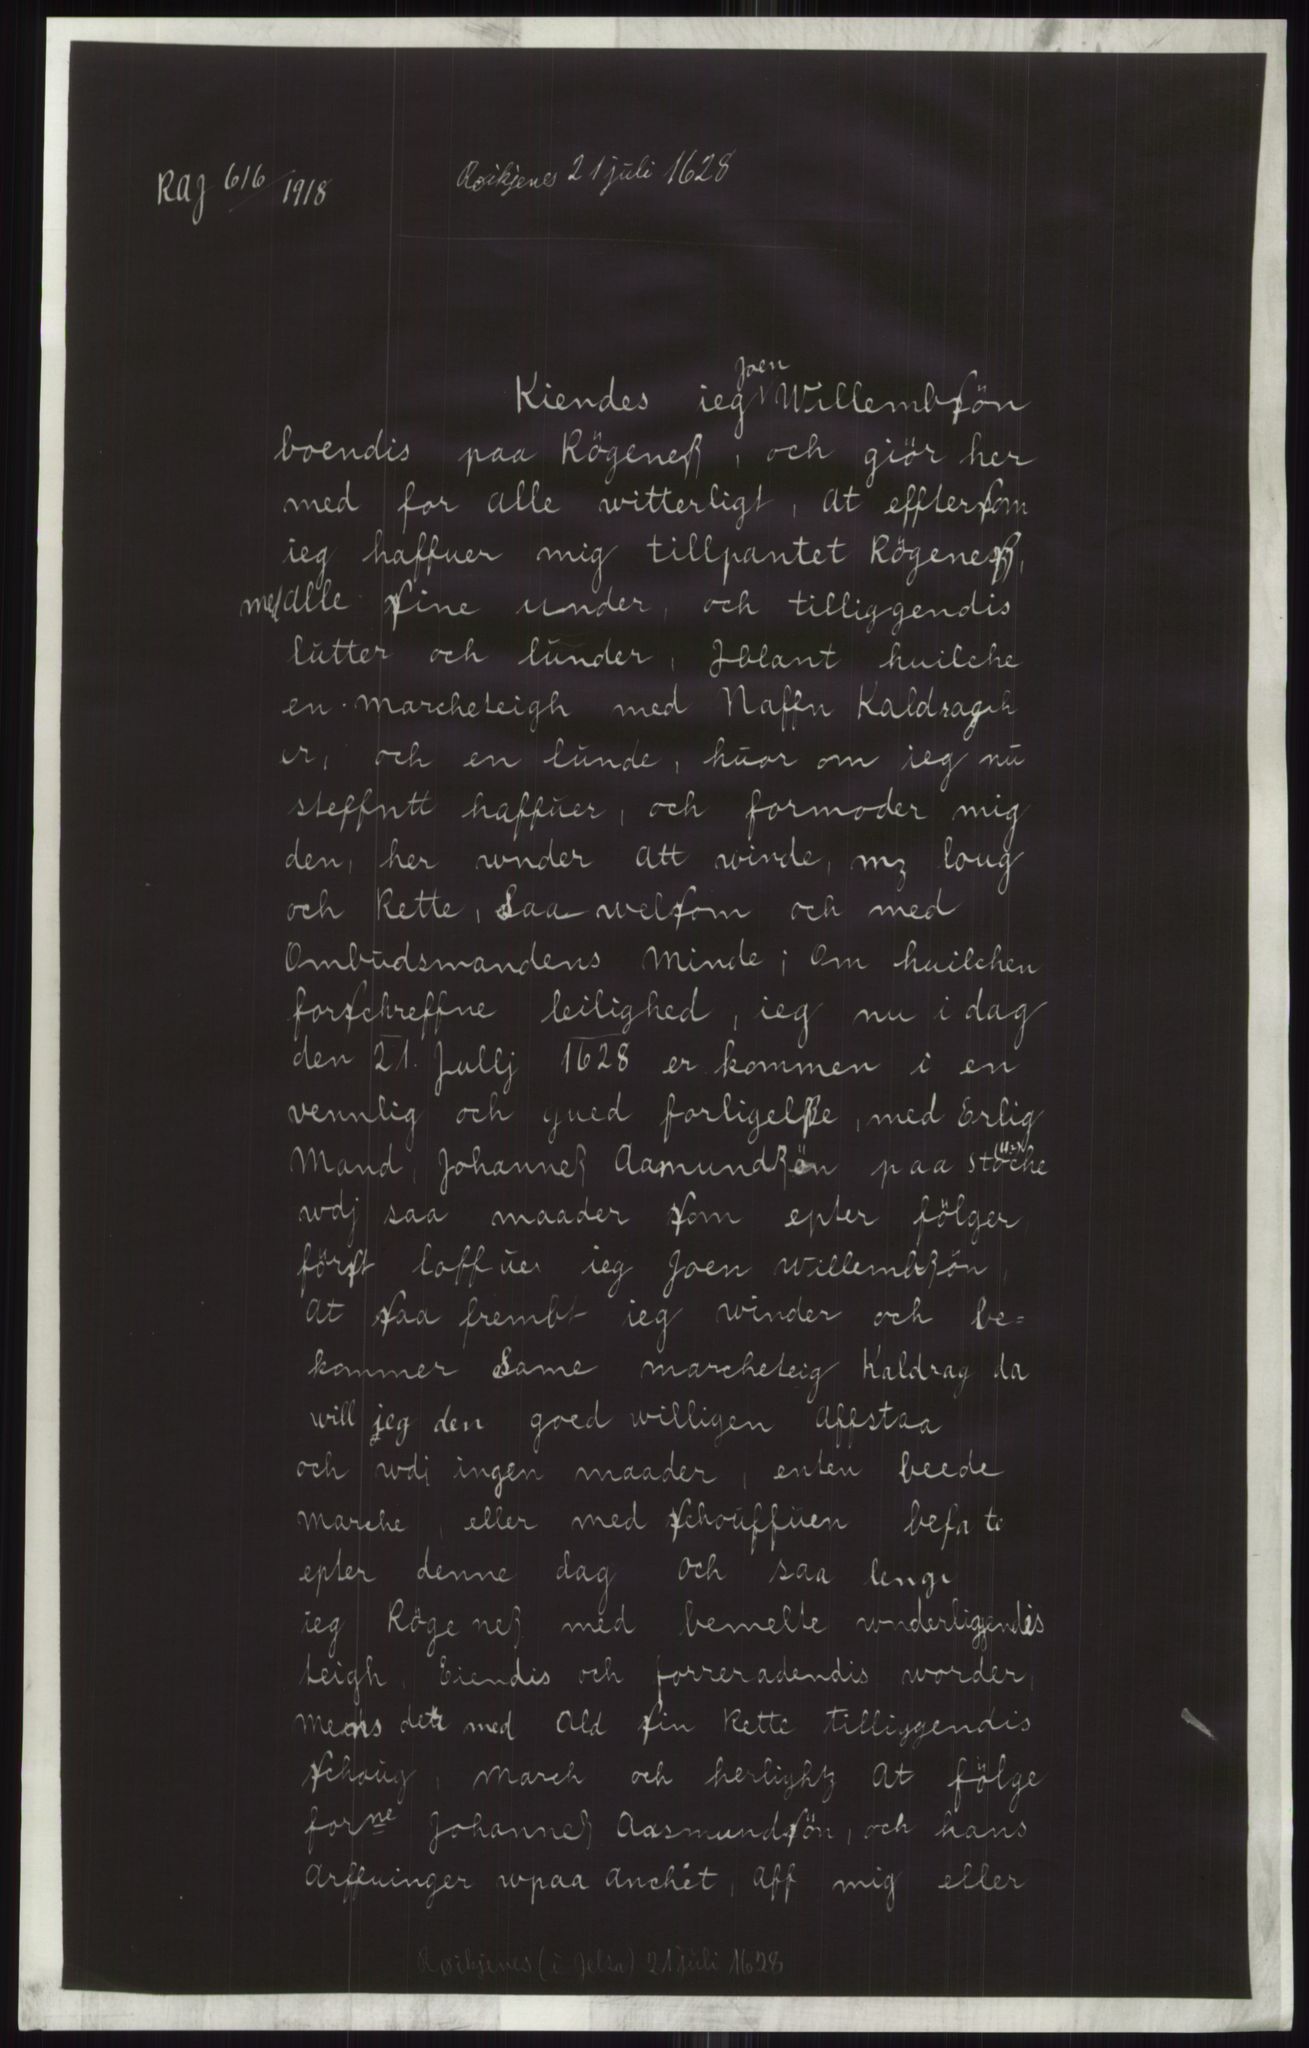 RAJ 616/1918
Røikjenes 21 juli 1628
Joen
Kiendes ieg Willembsön
boendis paa Rögeneß, och giör her
med for alle witterligt, at efftersom
ieg haffuer mig tillpantet Rögeneß,
mz alle sine under, och tilliggendis
lutter och lunder, Jblant huilche
en marcheteigh med Naffn Kaldragh
er, och en lunde, huor om ieg nu
steffntt haffuer, och formoder mig
den, her wnder att winde, mz loug
och Rette, Saa welsom och med
Ombudsmandens Minde; Om huilchen
forschreffne leilighed, ieg nu i dag
den 21. Jullj 1628 er kommen i en
vennlig och gued forligelße, med Erlig
Mand, Johanneß Aamundßön paa Stöche
wdj saa maader som epter fölger
först loffuer ieg Joen Willembßön,
At saa frembt ieg winder och be=
kommer Same marcheteig Kaldrag da
will jeg den goed willigen affstaa
och wdj ingen maader, enten beede
marche, eller med schouffuen befate
epter denne dag och saa lenge
ieg Rögeneß med bemelte wnderliggendis
teigh, Eiendis och forreradendis worder,
Mens dett med Ald sin Rette tilliggendis
schoug, march och herlighz At fölge
forne Johanneß Aasmundsön, och hans
Arffuinger wpaa Anchét, Aff mig eller
Røikjenes (i Jelsa) 21 juli 1628